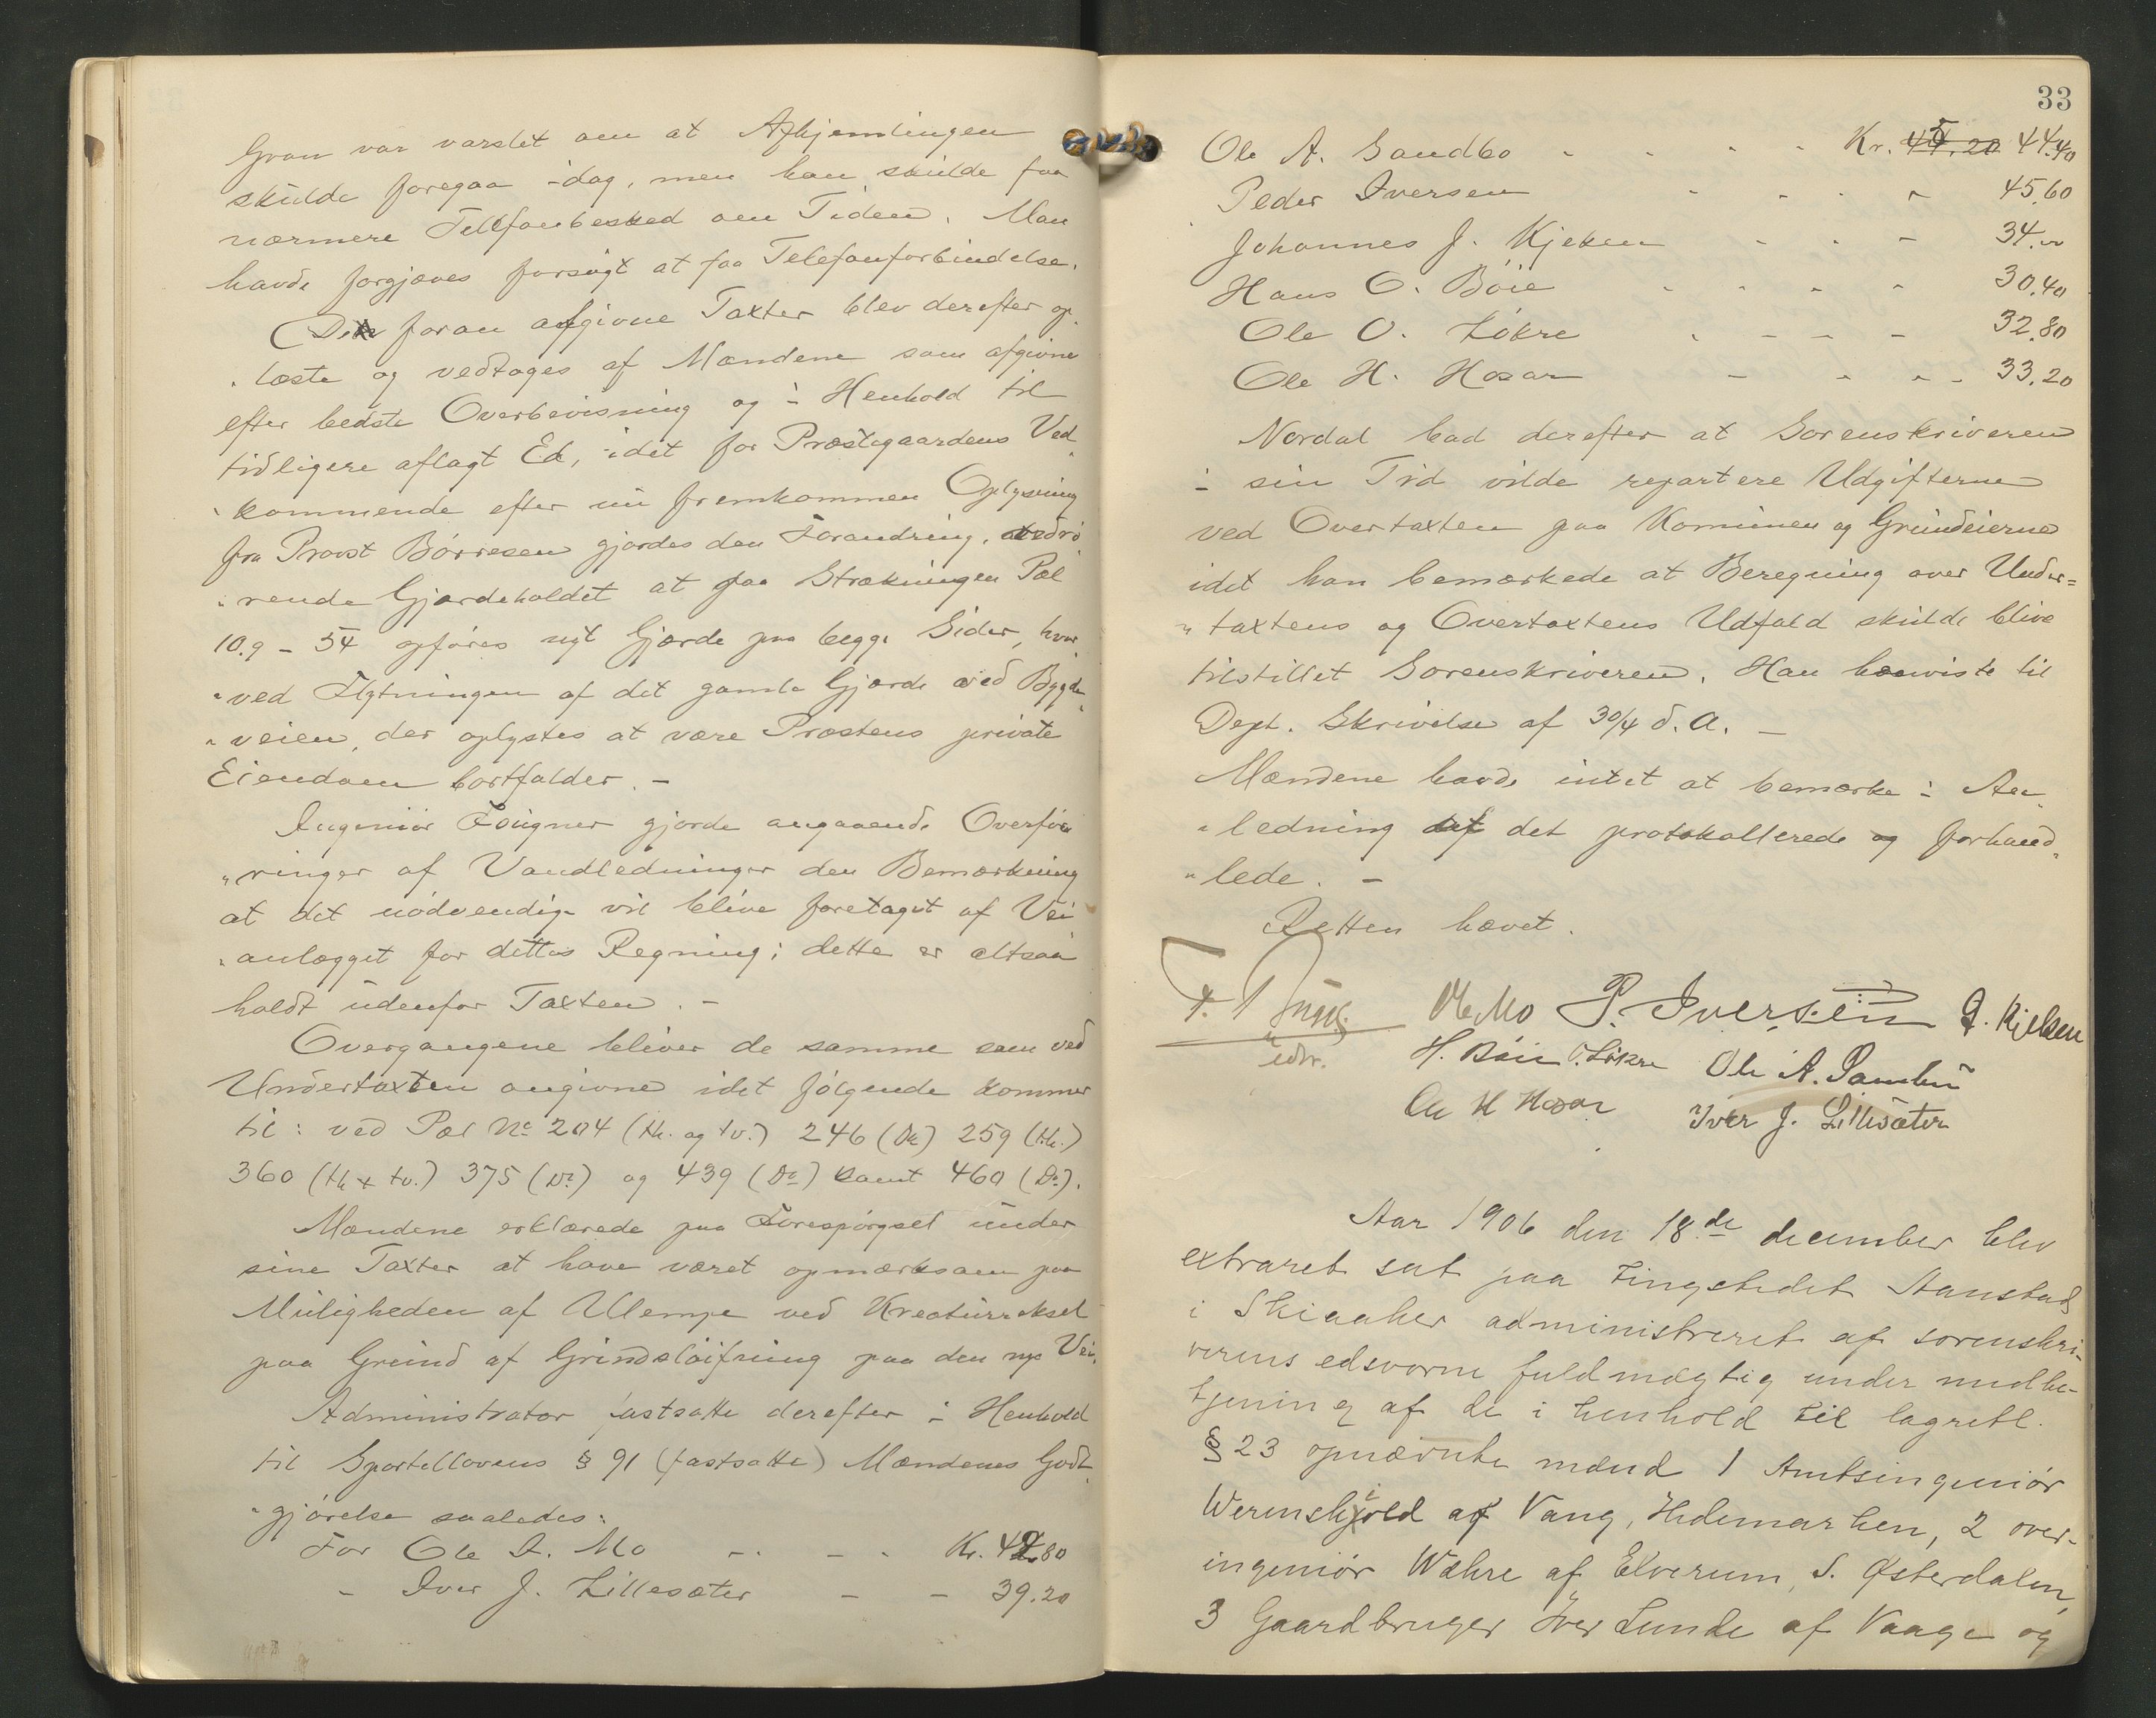 Gran var varslet om at Afhjemlingen
skulde foregaa idag, men han skulde faa
nærmere Telefonbesked om Tiden. Man
havde forgjæves forsøgt at faa Telefonforbindelse.
De foran afgivne Taxter blev derefter op-
læste og vedtoges af Mændene som afgivne
efter bedste Overbevisning og i Henhold til
tidligere aflagt Ed, idet for Præstegaardens Ved-
kommende efter nu fremkommen Oplysning
fra Provst Börresen gjordes den Forandring, vedrö-
rende Gjærdeholdet at paa Strækningen Pæl
10.9 - 54 opföres nyt Gjærde paa begge Sider, hvor-
ved Flytningen af det gamle Gjærde ved Bygde-
veien, der oplystes at være Præstens private
Eiendom bortfalder. -
Ingeniör Fougner gjorde angaaende Overfö-
ringer af Vandledninger den Bemærkning
at det nödvendige vil blive foretaget af Vei-
anlægget for dettes Regning; dette er altsaa
holdt udenfor Taxten. -
Overgangene bliver de samme som ved
Undertaxten angivne idet fölgende kommer
til: ved Pæl No 204 (th. og tv.) 246 (Do) 259 (th.)
360 (th + tv.) 375 (Do) og 439 (Do) samt 460 (Do).
Mændene erklærede paa Forespörgsel under
sine Taxter at have været opmærksom paa
Muligheden af Ulempe ved Kreaturtrækset
paa Grund af Grindslöifning paa den nye Vei.
Administrator fastsatte derefter i Henhold
til Sportellovens § 91 (fastsatte) Mændenes Godt-
gjörelse saaledes:
For Ole A. Mo - - - Kr. 42.80
- Iver J. Lillesæter - - 39.20
33
Ole A. Sandbo - - - - Kr. 45.20 44.40
Peder Iversen - - - - 45.60
Johannes J. Kjeken - - - 34.00
Hans O. Böie - - - - 30.40
Ole O. Lökre - - - - 32.80
Ole H. Hosar - - - - 33.20
Nordal bad derefter at Sorenskriveren
i sin Tid vilde repartere Udgifterne
ved Overtaxten paa Komunen og Grundeierne
idet han bemærkede at Beregning over Under-
taxtens og Overtaxtens Udfald skulde blive
tilstillet Sorenskriveren. Han henviste til
Dept. Skrivelse af 30/4 d. A. -
Mændene havde intet at bemærke i An-
ledning af det protokollerede og forhand-
lede. -
Retten hævet.
Ole Mo P. Iversen J. Kjeken
edsv. H. Böie O. Lökre Ole A. Sandbu
Ole H Hosar Iver J. Lillesæter
Aar 1906 den 18de december blev
extraret sat paa tingstedet Stamstad
i Skiaaker administreret af sorenskri-
verens edsvorne fuldmægtig under medbe-
tjening af de i henhold til lagretl.
§ 23 opnævnte mænd 1 Amtsingeniör
Werenskiold af Vang, Hedemarken, 2 over-
ingeniör Wæhre af Elverum, S. Østerdalen,
3 Gaardbruger Iver Lunde af Vaage og